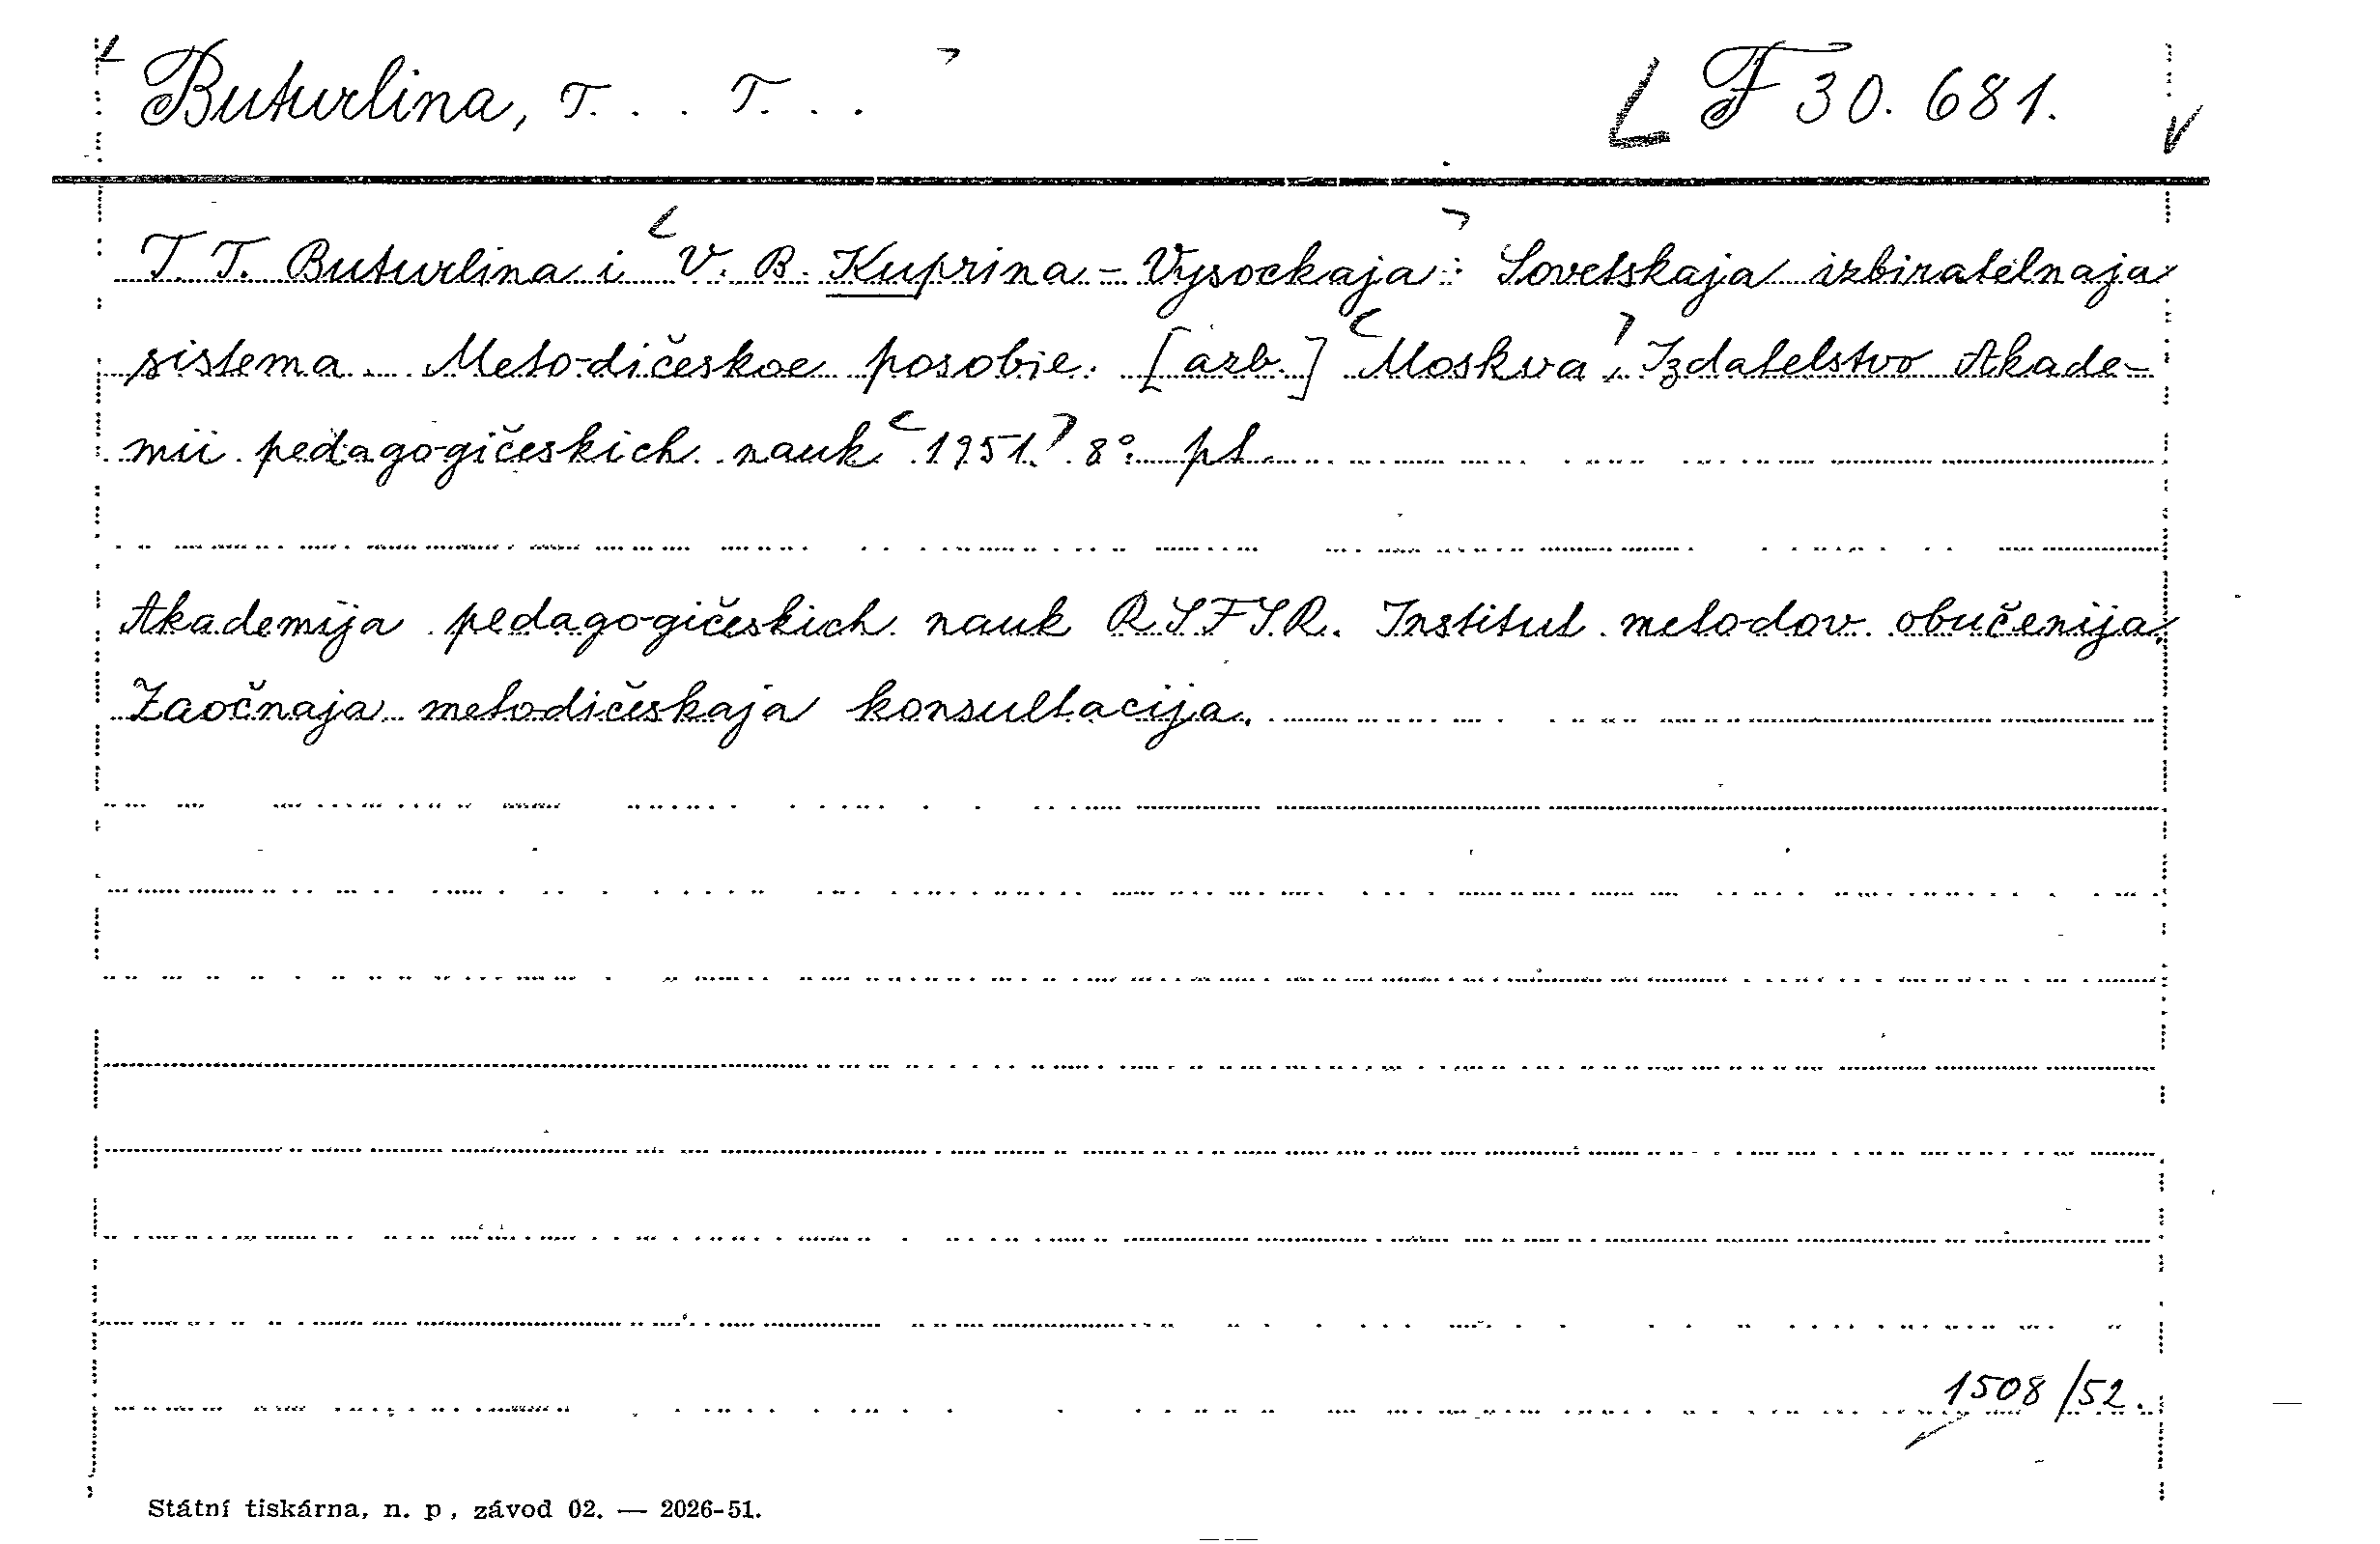 Buturlina, T. . . T. . . F 30.681.
T. T. Buturlina i V. B. Kuprina-Vysockaja: Sovetskaja izbiratelnaja
sistema. Metodičeskoe posobie. [azb.] Moskva, Izdatelstvo Akade-
mii pedagogičeskich nauk 1951. 8°. pl.
Akademija pedagogičeskich nauk RSFSR. Institut metodov obučenija.
Zaočnaja metodičeskaja konsultacija.
1508/52.
Státní tiskárna, n. p., závod 02. — 2026-51.